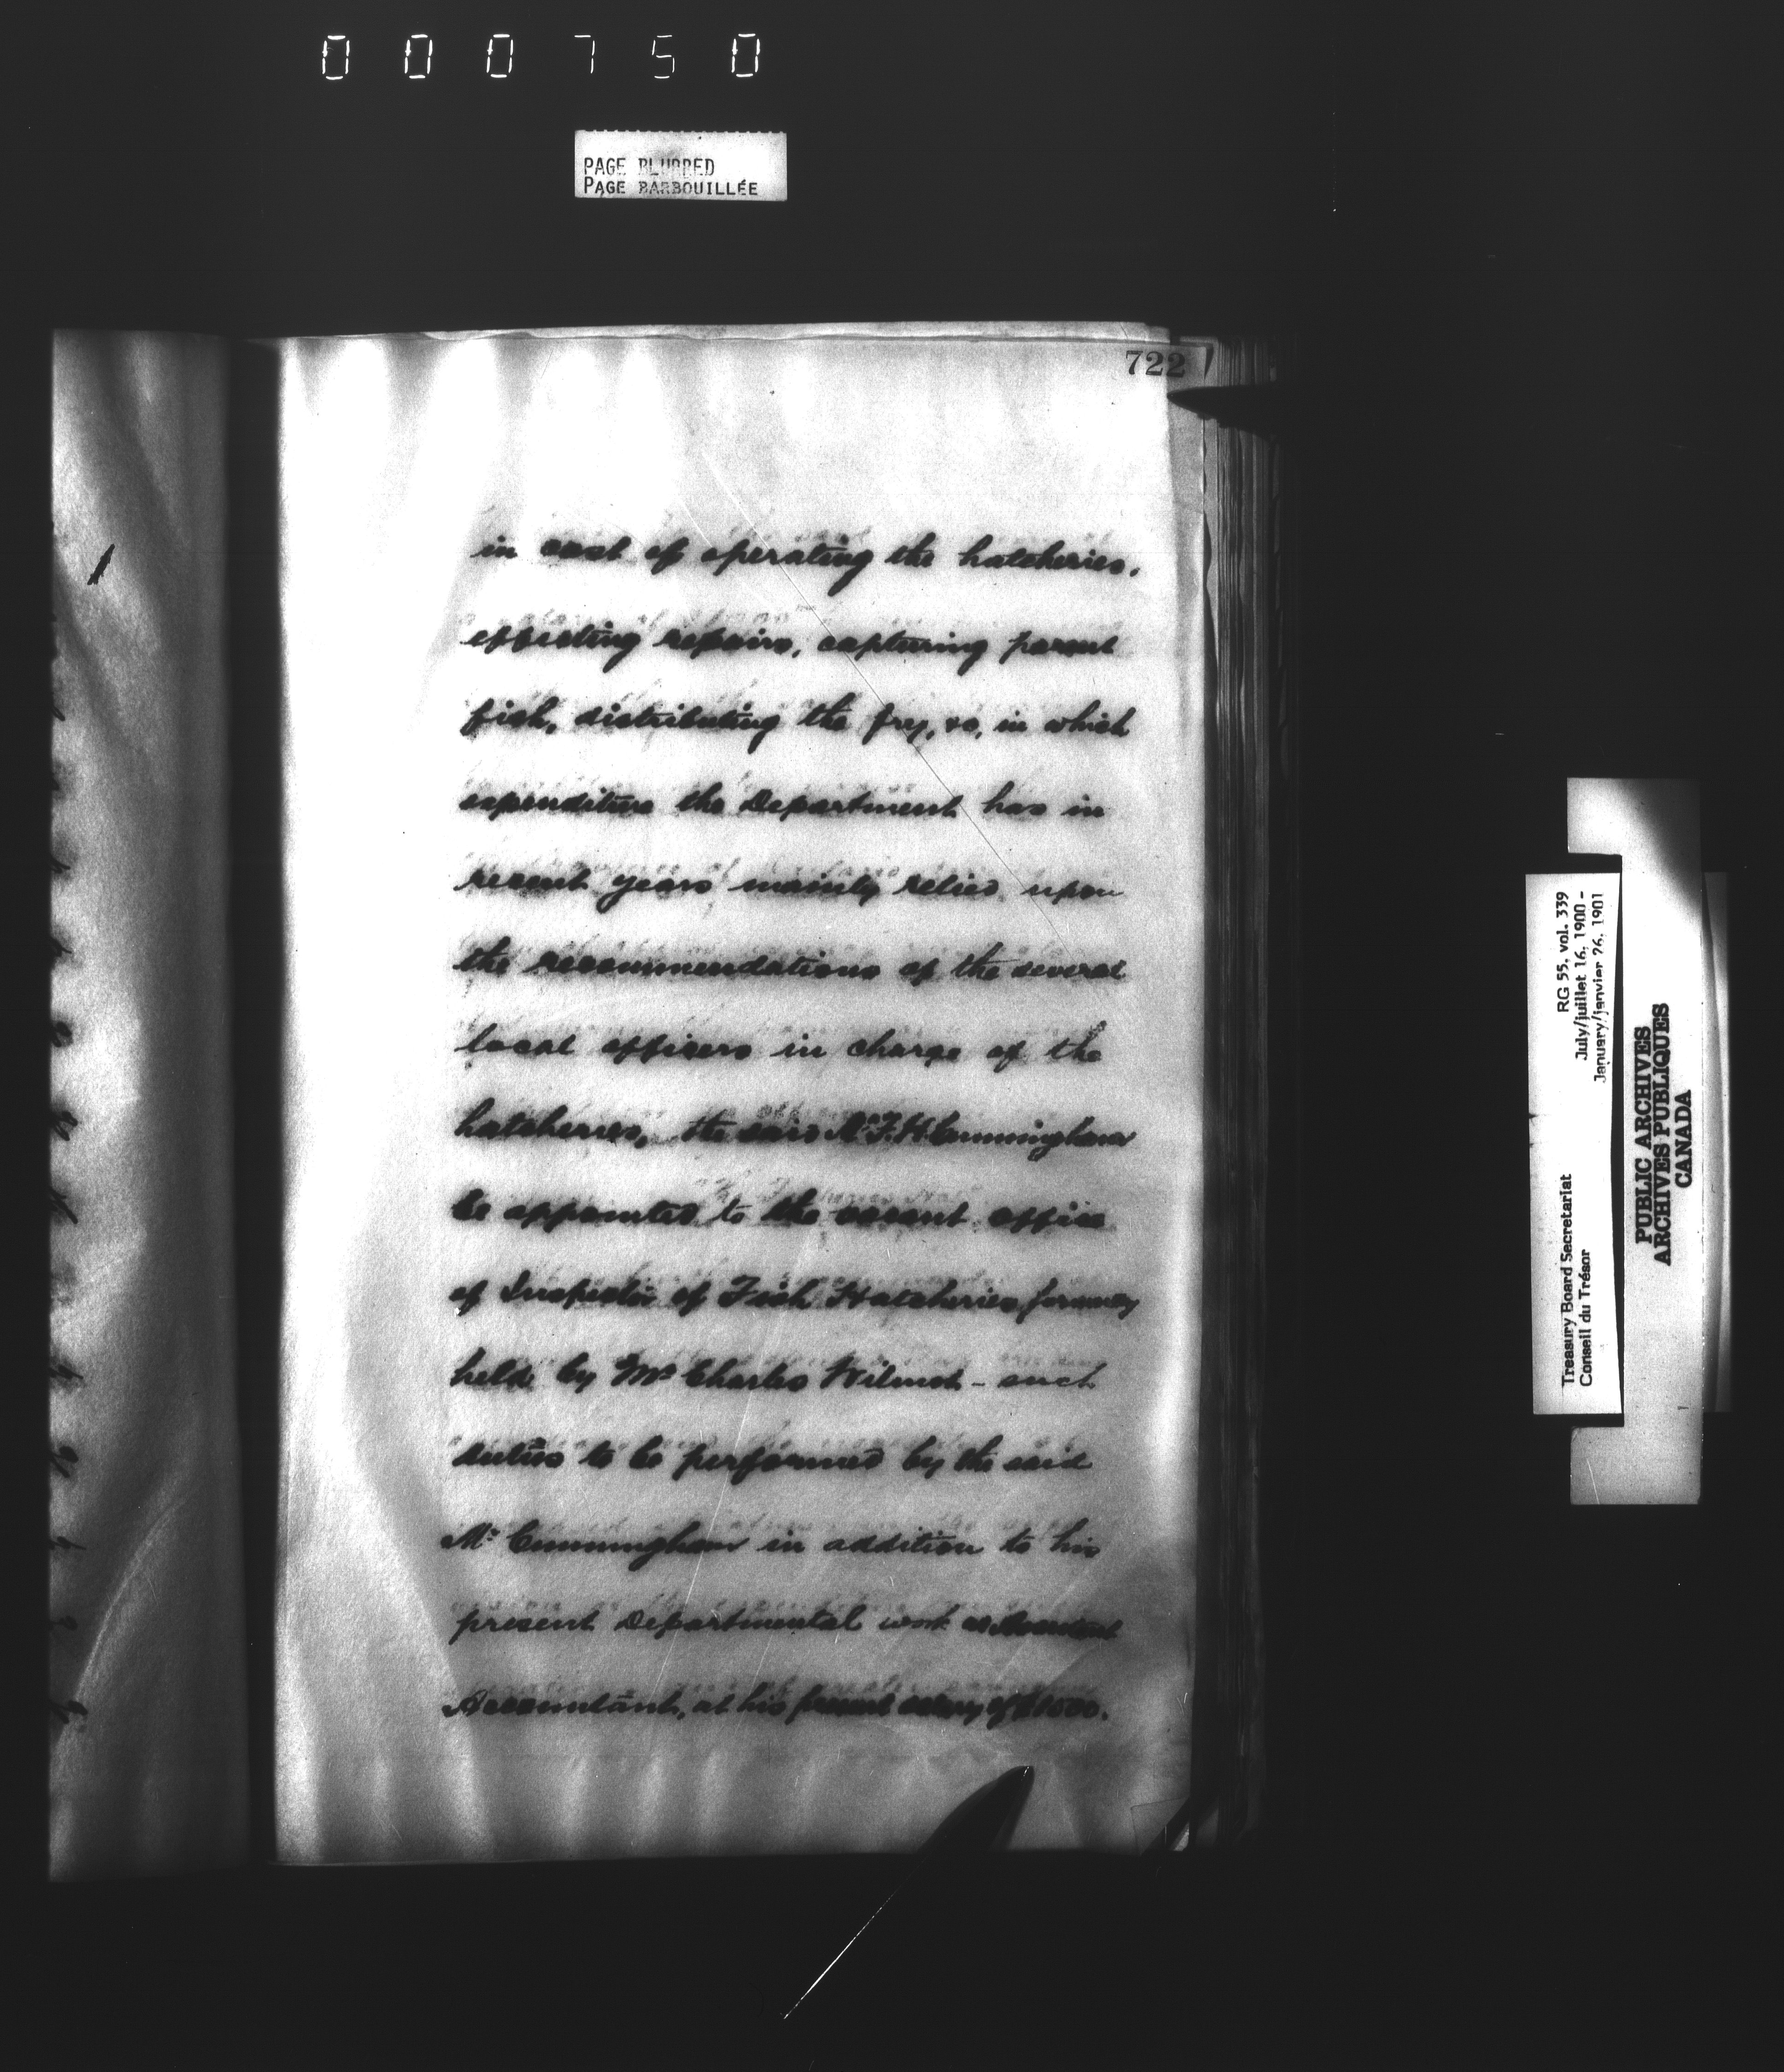 000750
PAGE BLURRED
PAGE BARBOUILLÉE
722
in cost of operating the hatcheries,
effecting repairs, capturing parent
fish, distributing the fry, &c, in which
expenditure the Department has in
recent years mainly relied upon
the recommendations of the several
local officers in charge of the
hatcheries, the said Mr F. H. Cunningham
be appointed to the vacant office
of Inspector of Fish Hatcheries, formerly
held by Mr Charles Wilmot - such
duties to be performed by the said
Mr Cunningham in addition to his
present Departmental work as
Accountant, at his present salary of
RG 55, vol. 339
July/juillet 16, 1900 -
January/janvier 26, 1901
Treasury Board Secretariat
Conseil du Trésor
PUBLIC ARCHIVES
ARCHIVES PUBLIQUES
CANADA